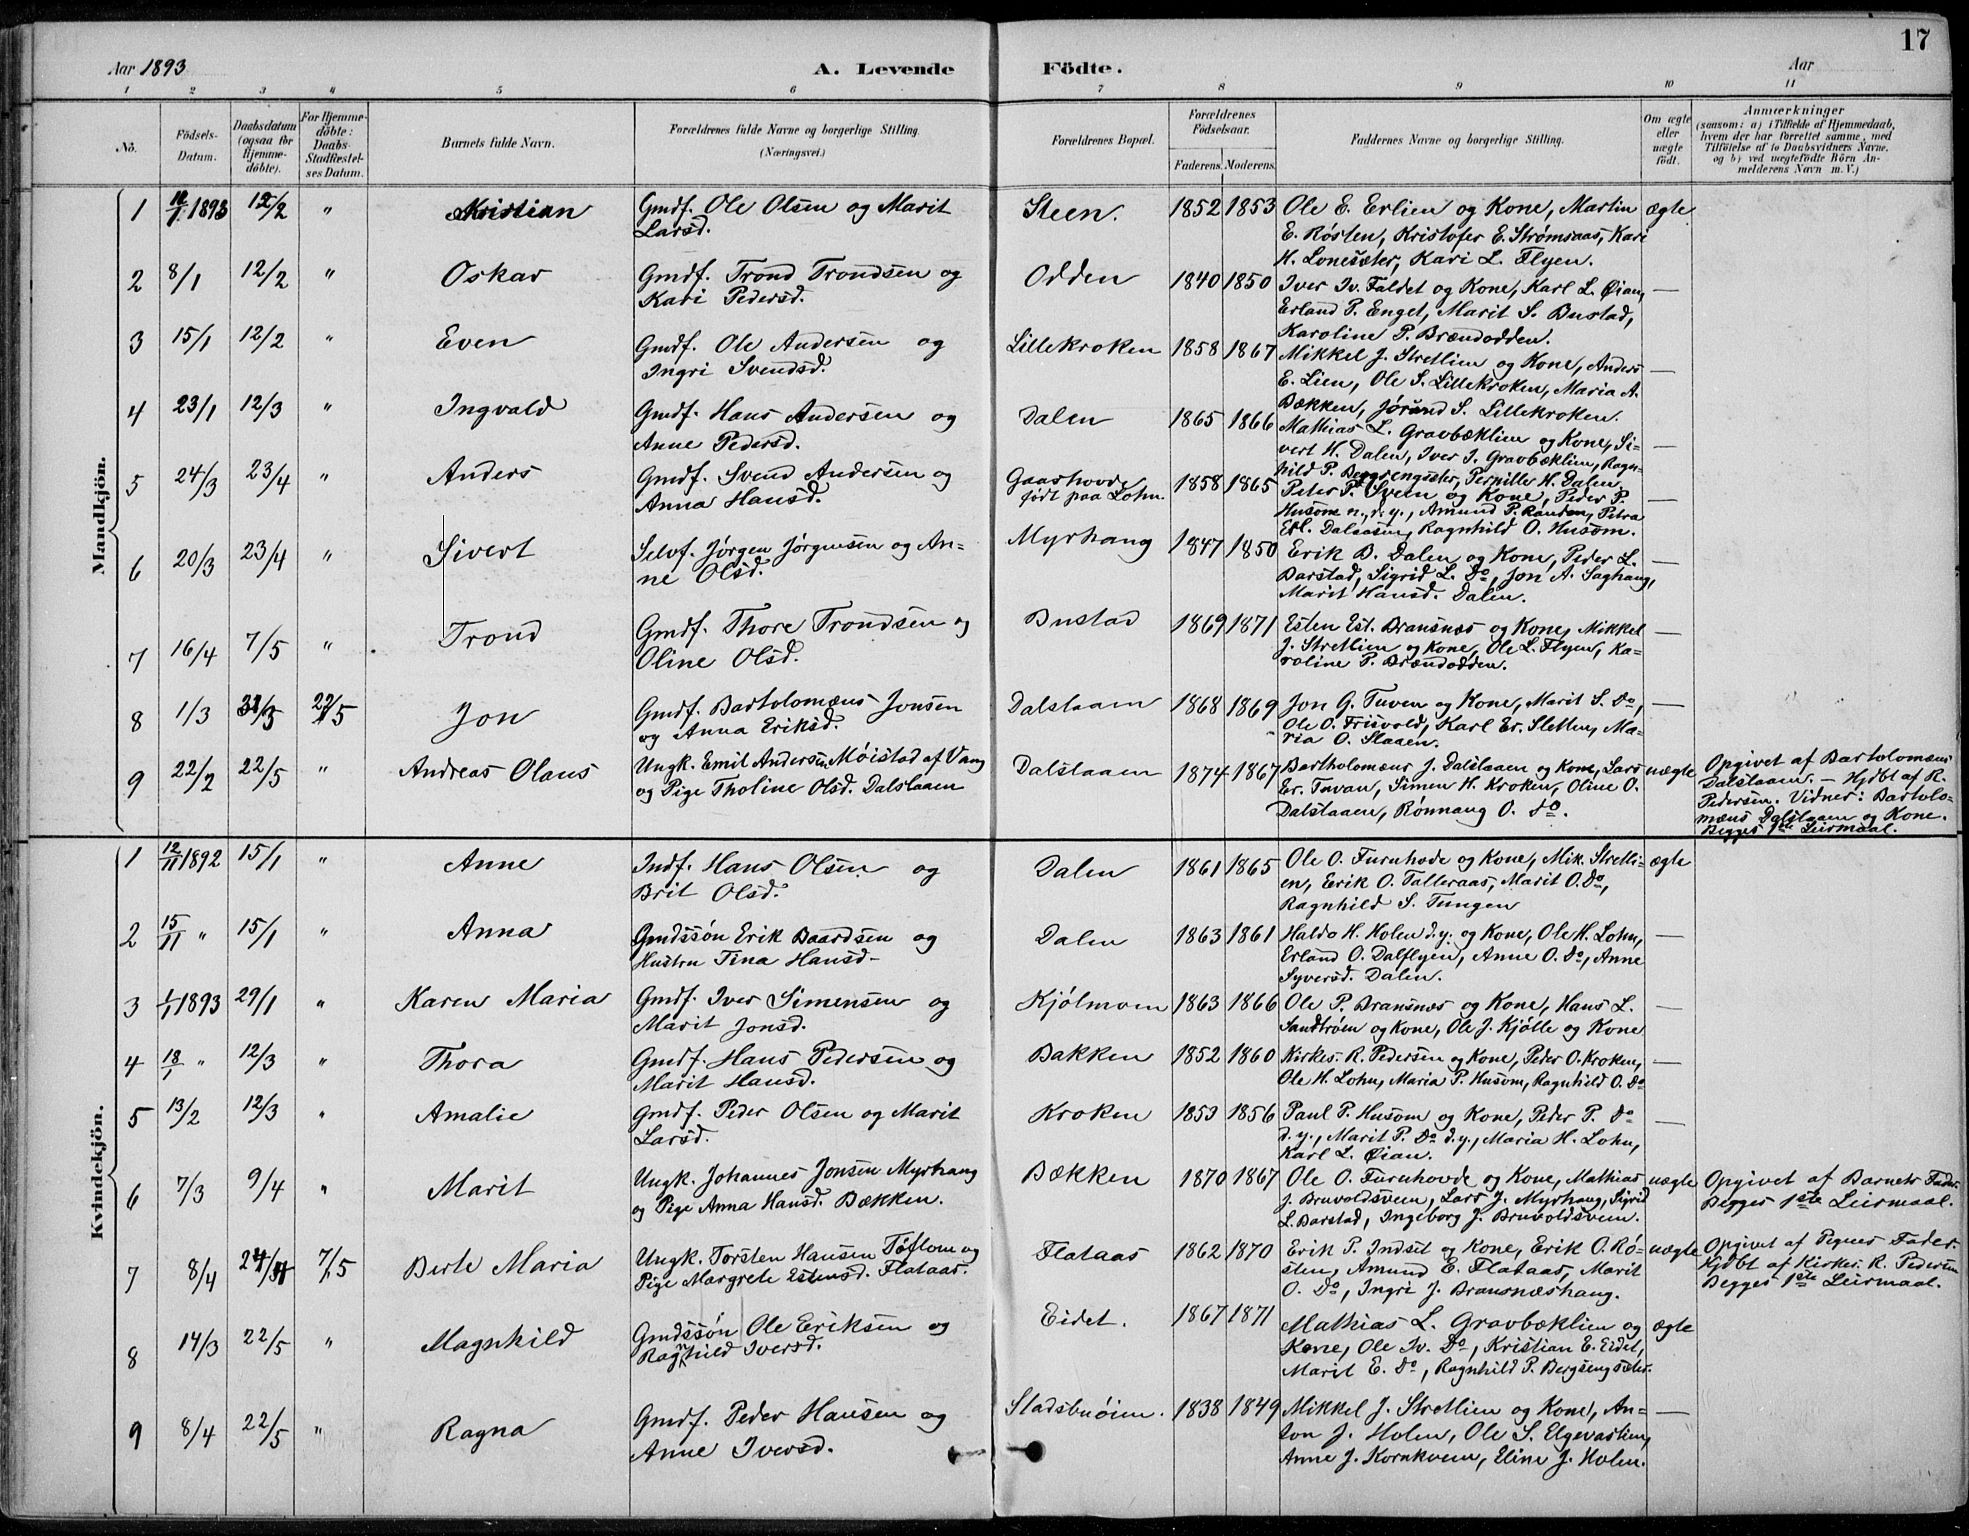 17
Aar 1893
A. Levende Födte.
Aar
1 2 3 4 5 6 7 8 9 10 11
No.
Födsels-
Datum.
Daabsdatum
(ogsaa for
Hjemme-
döbte).
For Hjemme-
döbte:
Daabs-
Stadfæstel-
ses Datum.
Barnets fulde Navn.
Forældrenes fulde Navne og borgerlige Stilling.
(Næringsvei.)
Forældrenes Bopæl.
Forældrenes
Födselsaar.
Faderens. Moderens.
Faddernes Navne og borgerlige Stilling.
Om ægte
eller
uægte
födt.
Anmærkninger
(saasom: a) i Tilfælde af Hjemmedaab,
hvem der har forrettet samme, med
Tilföielse af to Daabsvidners Navne,
og b) ved uægtefödte Börn An-
melderens Navn m. V.)
Mandkjön.
1 1893 12/2 " Kristian
Gmdf. Ole Olsen og Marit
Larsd.
Steen. 1852 1853
Ole E. Erlien og Kone, Martin
E. Røsten, Kristofer E. Strømsaas, Kari
H. Lonesæter, Kari L. Flyen.
ægte
2 8/1 12/2 " Oskar
Gmdf. Trond Trondsen og
Kari Pedersd.
Odden 1840 1850
Iver Iv. Faldet og Kone, Karl L. Øian,
Erland P. Enget, Marit S. Bustad,
Karoline P. Brændodden.
—
3 15/1 12/2 " Even
Gmdf. Ole Andersen og
Ingri Svendsd.
Lillekroken 1858 1867
Mikkel J. Stretlien og Kone, Anders
E. Lien, Ole S. Lillekroken, Maria A.
Bækken, Jørand S. Lillekroken.
—
4 23/1 12/3 " Ingvald
Gmdf. Hans Andersen og
Anne Pedersd.
Dalen 1865 1866
Mathias L. Gravbæklien og Kone, Si-
vert H. Dalen, Iver I. Gravbæklien, Ragn-
hild P. Bergsengsæter, Pernille H. Dalen.
—
5 24/3 23/4 " Anders
Gmdf. Svend Andersen og
Anna Hansd.
Gaashovde
født paa Lohn. 1858 1865
Peter P. Sveen og Kone, Peder P.
Husom n., d. y., Amund P. Randen, Petra
Dalsaasen, Ragnhild O. Husom.
—
6 20/3 23/4 " Sivert
Selvf. Jørgen Jørgensen og An-
ne Olsd.
Myrhaug 1847 1850
Erik B. Dalen og Kone, Peder L.
Barstad, Sigrid L. Do, Jon A. Saghaug,
Marit Hansd. Dalen.
—
7 16/4 7/5 " Trond
Gmdf. Thore Trondsen og
Oline Olsd.
Bustad 1869 1871
Esten Est. Bransnæs og Kone, Mikkel
J. Stretlien og Kone, Ole L. Flyen, Ka-
roline P. Brændodden.
—
8 1/3 22/5 Jon
Gmdf. Bartolomæus Jonsen
og Anna Eriksd.
Dalslaaen 1868 1869
Jon G. Tuven og Kone, Marit S. Do,
Ole O. Frisvold, Karl Er. Sletten, Ma-
ria O. Slaaen.
—
9 22/2 22/5 " Andreas Olaus
Ungk. Emil Andersen Møistad af Vang
og Pige Tholine Olsd. Dalslaaen
Dalslaaen 1874 1867
Bartholomæus J. Dalslaaen og Kone, Lars
Er. Tuvan, Simen H. Kroken, Oline O.
Dalslaaen, Rønnaug O. Do.
uægte
Opgivet af Bartolomæus
Dalslaaen. — Hjdbt af R.
Pedersen. Vidner: Bartolo-
mæus Dalslaaen og Kone.
Begges 1ste Leiermaal.
Kvindekjön.
1 12/11 1892 15/1 " Anne
Indf. Hans Olsen og
Brit Olsd.
Dalen 1861 1865
Ole O. Furuhode og Kone, Mik. Stretli-
en, Erik O. Talleraas, Marit O. Do,
Ragnhild S. Tungen
ægte
2 15/11 " 15/1 " Anna
Gmdssøn Erik Baardsen og
Hustru Tina Hansd-
Dalen 1863 1861
Haldo H. Holen d.y. og Kone, Ole H. Lohn,
Erland O. Dalflyen, Anne O. Do, Anne
Syversd. Dalen.
—
3 1/1 1893 29/1 " Karen Maria
Gmdf. Iver Simensen og
Marit Jonsd.
Kjølmoen 1863 1866
Ole P. Bransnæs og Kone, Hans L.
Sandtrøen og Kone, Ole J. Kjølle og Kone
—
4 18/1 " 12/3 " Thora
Gmdf. Hans Pedersen og
Marit Hansd.
Bakken 1852 1860
Kirkes. R. Pedersen og Kone, Peder O. Kroken,
Ole H. Lohn, Maria P. Husom, Ragnhild O. Do
—
5 13/2 12/3 " Amalie
Gmdf. Peder Olsen og Marit
Larsd.
Kroken 1853 1856
Paul P. Husom og Kone, Peder P. Do
d. y., Marit P. Do d. y., Maria H. Lohn,
Karl L. Øian.
—
6 7/3 9/4 " Marit
Ungk. Johannes Jonsen Myrhaug
og Pige Anna Hansd. Bækken.
Bækken 1870 1867
Ole O. Furuhovde og Kone, Mathias
J. Bruvoldsveen, Lars J. Myrhaug, Sigrid
L. Barstad, Ingeborg J. Bruvoldsveen.
uægte
Opgivet af Barnets Fader.
Begges 1ste Leiermaal.
7 8/4 7/5 Berte Maria
Ungk. Torsten Hansen Tøftom og
Pige Margrete Estensd. Flataas.
Flataas 1862 1870
Erik P. Indset og Kone, Erik O. Rø-
sten, Amund E. Flataas, Marit
O. Do, Ingri J. Bransnæshaug.
uægte
Opgivet af Pigens Fader.
Hjdbt af Kirkes. R. Pedersen
Begges 1ste Leiermaal.
8 14/3 22/5 " Magnhild
Gmdssøn Ole Eriksen og
Ragnhild Iversd.
Eidet. 1867 1871
Mathias L. Gravbæklien og
Kone, Ole Iv. Do, Kristian E. Eidet,
Marit E. Do, Ragnhild P. Bergsengsæter.
ægte
9 8/4 22/5 " Ragna
Gmdf. Peder Hansen og
Anne Iversd.
Stadsbuøien. 1838 1849
Mikkel J. Stretlien og Kone, An-
ton J. Holen, Ole S. Elgevastien,
Anne J. Kornkveen, Eline J. Holen.
—